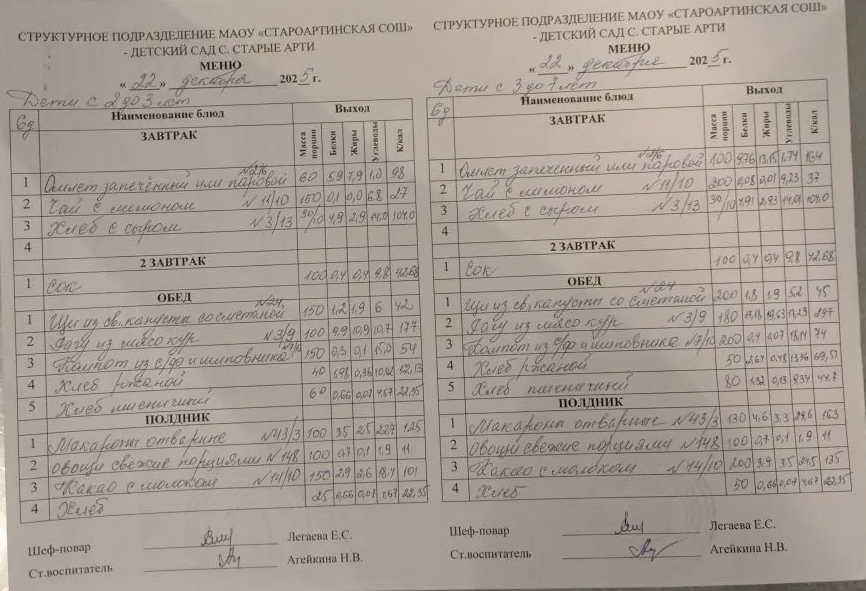 СТРУКТУРНОЕ ПОДРАЗДЕЛЕНИЕ МАОУ «СТАРОАРТИНСКАЯ СОШ»
- ДЕТСКИЙ САД С. СТАРЫЕ АРТИ
МЕНЮ
« 22 » декабря 2025 г.
Дети с 2 до 3 лет
6д Наименование блюд Выход
ЗАВТРАК Масса порции Белки Жиры Углеводы К/кал
1 Омлет запечённый или паровой №2/6 60 5,9 7,9 1,0 98
2 Чай с лимоном №11/10 150 0,1 0,0 6,8 27
3 Хлеб с сыром №3/13 30/10 4,9 2,9 14,0 104,0
4
2 ЗАВТРАК
1 Сок 100 0,4 0,4 9,8 42,68
ОБЕД
1 Щи из св. капусты со сметаной №24 150 1,2 1,9 6 42
2 Рагу из мясо кур №3/9 100 9,9 10,9 10,7 177
3 Компот из с/ф и шиповника №7/10 150 0,3 0,1 15,0 54
4 Хлеб ржаной 40 1,98 0,36 52,13
5 Хлеб пшеничный 60 0,66 0,07 4,67 22,35
ПОЛДНИК
1 Макароны отварные №43/3 100 3,5 2,5 22,7 125
2 овощи свежие порциями №148 100 0,7 0,1 1,9 11
3 Какао с молоком №14/10 150 2,9 2,6 18,4 101
4 Хлеб 25 0,66 0,07 4,67 22,35
Шеф-повар Легаева Е.С.
Ст.воспитатель Агейкина Н.В.
СТРУКТУРНОЕ ПОДРАЗДЕЛЕНИЕ МАОУ «СТАРОАРТИНСКАЯ СОШ»
- ДЕТСКИЙ САД С. СТАРЫЕ АРТИ
МЕНЮ
« 22 » декабря 2025 г.
Дети с 3 до 7 лет
6д Наименование блюд Выход
ЗАВТРАК Масса порции Белки Жиры Углеводы К/кал
1 Омлет запеченный или паровой №2/6 100 9,76 13,15 1,74 164
2 Чай с лимоном №11/10 200 0,08 0,01 9,23 37
3 Хлеб с сыром №3/13 30/10 4,91 2,93 14,01 104,0
4
2 ЗАВТРАК
1 Сок 100 0,4 0,4 9,8 42,68
ОБЕД
1 Щи из св. капусты со сметаной №24 200 1,8 1,9 5,2 45
2 Рагу из мясо кур №3/9 180 297
3 Компот из с/ф и шиповника №7/10 200 0,4 0,07 18,14 74
4 Хлеб ржаной 50 2,64 0,48 13,36 69,51
5 Хлеб пшеничный 80 1,32 0,13 9,34 44,7
ПОЛДНИК
1 Макароны отварные №43/3 130 4,6 3,3 29,6 163
2 овощи свежие порциями №148 100 0,7 0,1 1,9 11
3 Какао с молоком №14/10 200 3,9 3,5 24,5 135
4 Хлеб 50 0,66 0,07 4,67 22,35
Шеф-повар Легаева Е.С.
Ст.воспитатель Агейкина Н.В.